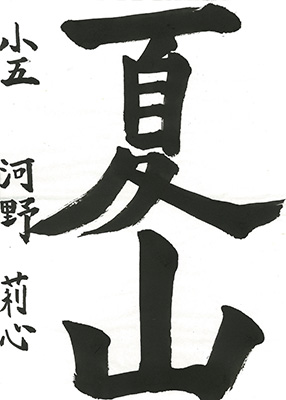 夏山
小五 河野 莉心